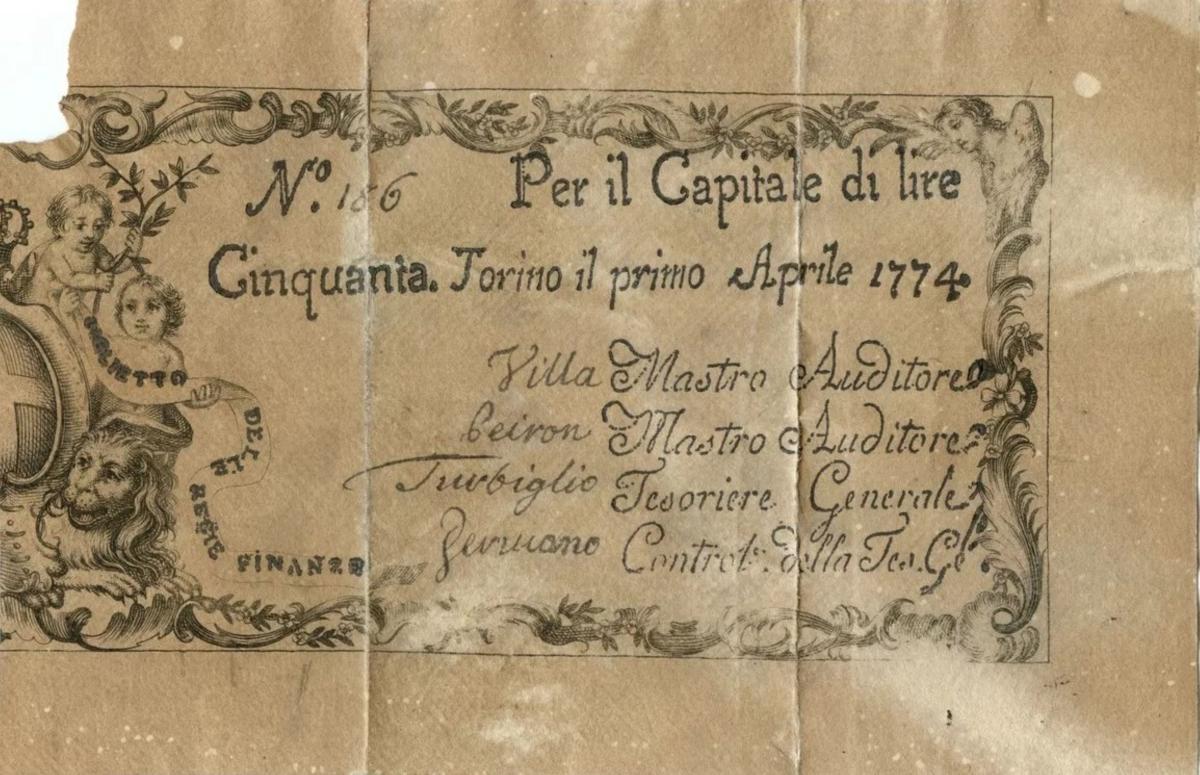 N.ro 186 Per il Capitale di lire
Cinquanta. Torino il primo Aprile 1774.
Villa Mastro Auditore
Beiron Mastro Auditore
Turbiglio Tesoriere Generale
Controt. della Tes. Gle
BIGLIETTO
DELLE REGIE
FINANZE